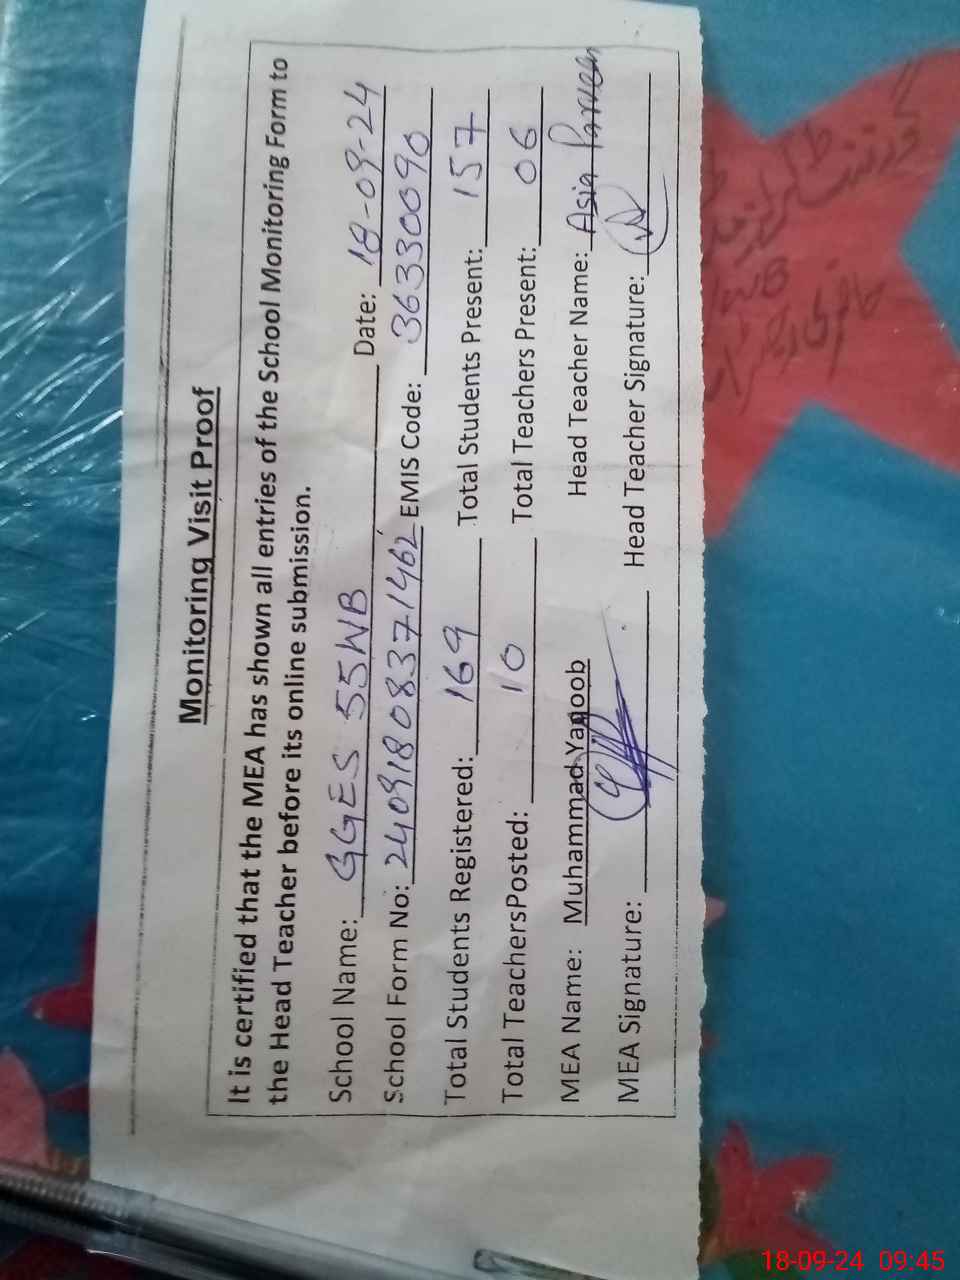 Monitoring Visit Proof
It is certified that the MEA has shown all entries of the School Monitoring Form to
the Head Teacher before its online submission.
School Name: GGES 55WB Date: 18-09-24
School Form No: 24091808371462 EMIS Code: 36330090
Total Students Registered: 169 Total Students Present: 157
Total TeachersPosted: 10 Total Teachers Present: 06
MEA Name: Muhammad Yaqoob Head Teacher Name: Asia Parveen
MEA Signature: Head Teacher Signature:
18-09-24 09:45